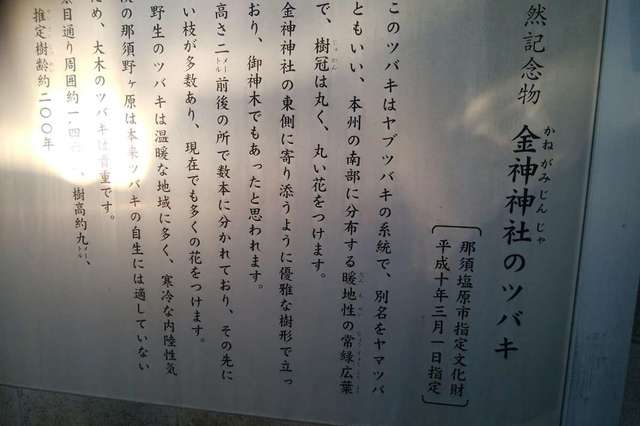 然記念物 金神神社のツバキ
かねがみじんじゃ
那須塩原市指定文化財
平成十年三月一日指定
このツバキはヤブツバキの系統で、別名をヤマツバ
ともいい、本州の南部に分布する暖地性の常緑広葉
で、樹冠は丸く、丸い花をつけます。
じゅかん
金神神社の東側に寄り添うように優雅な樹形で立っ
おり、御神木でもあったと思われます。
高さ二メートル前後の所で数本に分かれており、その先に
い枝が多数あり、現在でも多くの花をつけます。
野生のツバキは温暖な地域に多く、寒冷な内陸性気
の那須野ヶ原は本来ツバキの自生には適していない
め、大木のツバキは貴重です。
目通り周囲約一・四 、樹高約九メートル、
推定樹齢約二〇〇年